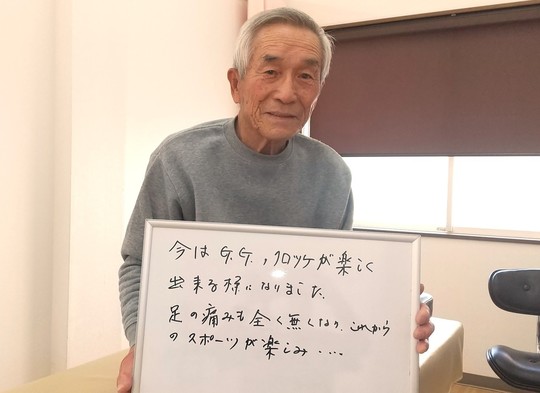 今は G.G.,クロッケが楽しく
出来る様になりました.
足の痛みも全く無くなり.これから
のスポーツが楽しみ....